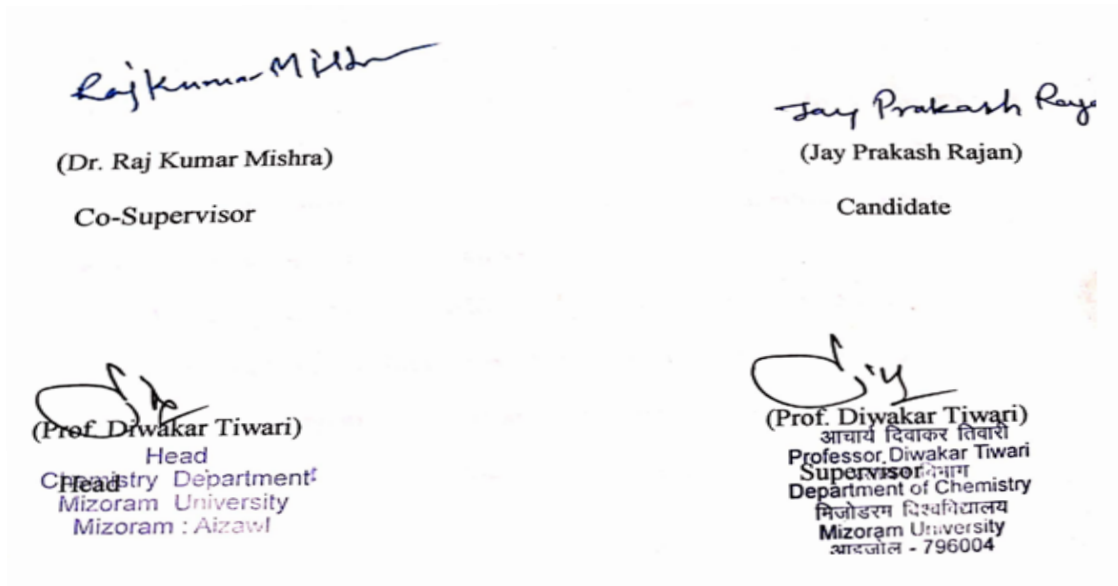 Raj Kumar Mishra
(Dr. Raj Kumar Mishra)
Co-Supervisor
Jay Prakash
(Jay Prakash Rajan)
Candidate
(Prof. Diwakar Tiwari)
Head
Head
Chemistry Department
Mizoram University
Mizoram : Aizawl
(Prof. Diwakar Tiwari)
आचार्य दिवाकर तिवारी
Professor Diwakar Tiwari
Supervisor
विभाग
Department of Chemistry
मिजोरम विश्वविद्यालय
Mizoram University
आइजोल - 796004